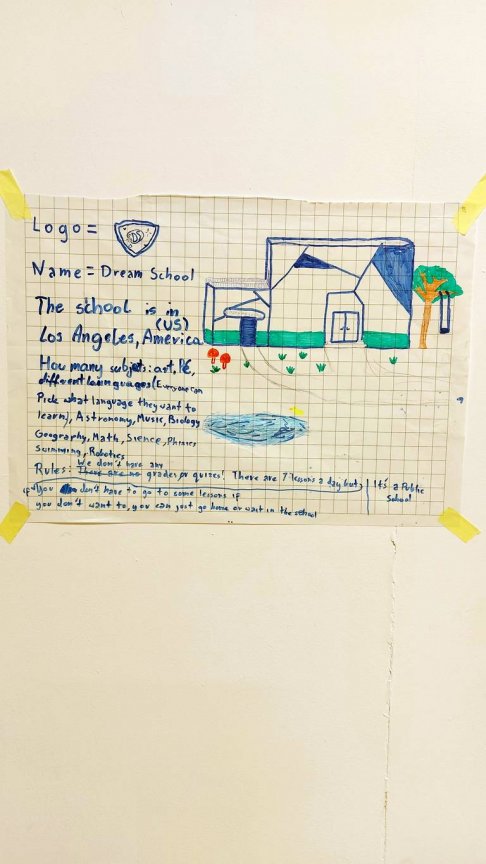 Logo =
DS
Name = Dream School
The school is in
(US)
Los Angeles, America
How many subjets: art, PE,
different languages (Everyone can
Pick what language they want to
learn), Astronomy, Music, Biology
Geography, Math, Sience, Phisics
Swimming, Robotics
We don't have any
Rules: There are no grades or quizes! There are 7 lessons a day but
if you don't have to go to some lessons if
you don't want to, you can just go home or wait in the school
It's a Public
School